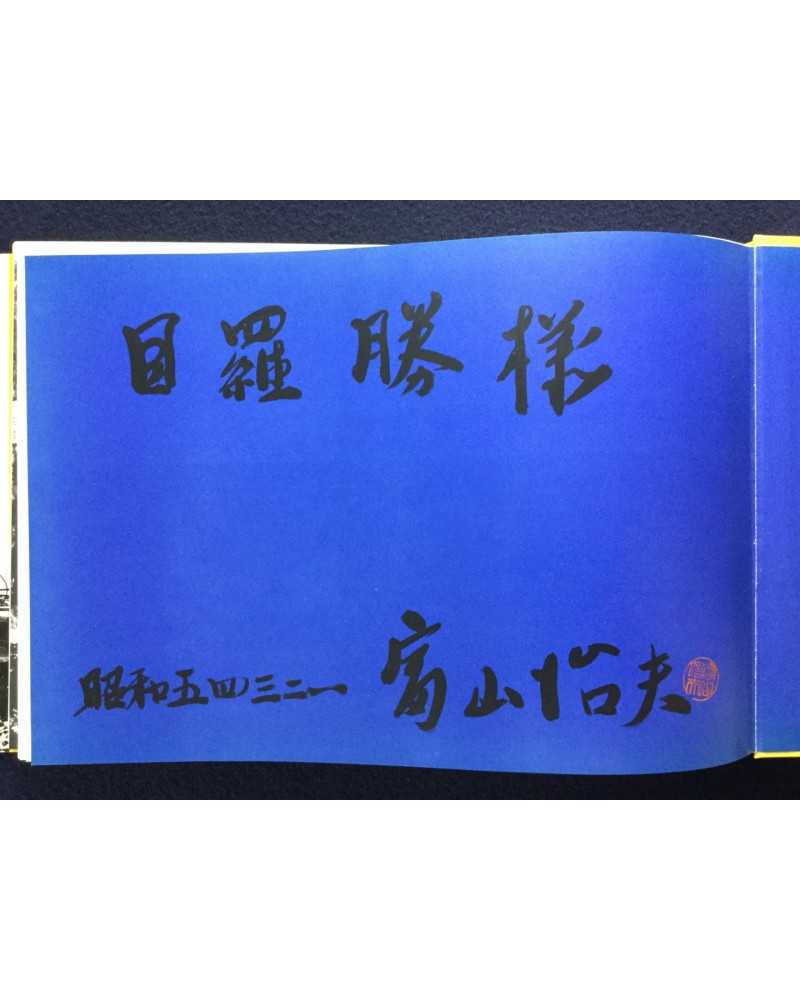 目羅勝様
昭和五四 三 二一
富山怡夫